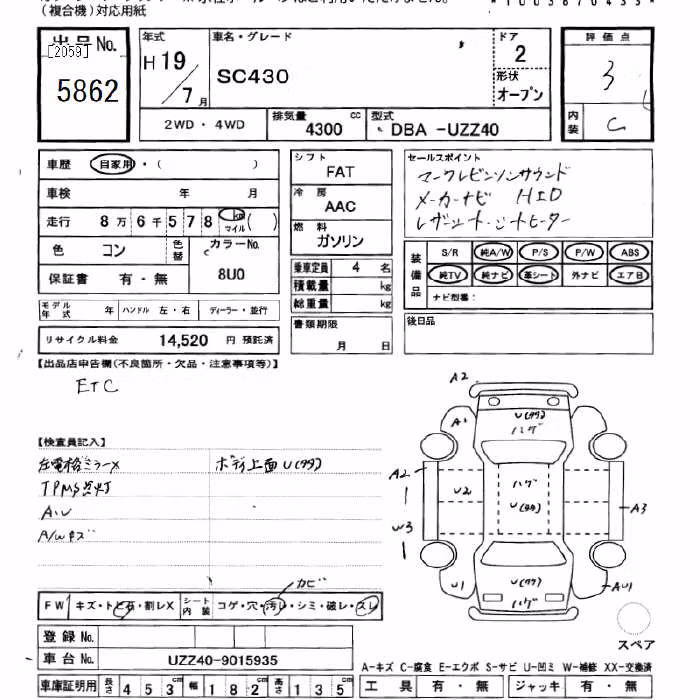 (複合機)対応用紙
*1003870433*
出品No.
[2059]
5862
年式
H19/7月
車名・グレード
SC430
ドア
2
形状
オープン
評価点
3
内装
C
2WD・4WD
排気量
4300 cc
型式
DBA -UZZ40
車歴 自家用・( )
車検 年 月
走行 8万6千578 km マイル ( )
色 コン 色替 カラーNo. 8U0
保証書 有・無
モデル年式 年 ハンドル 左・右 ディーラー・並行
リサイクル料金 14,520 円 預託済
シフト
FAT
冷房
AAC
燃料
ガソリン
乗車定員 4 名
積載量 kg
総重量 kg
書類期限
月 日
セールスポイント
マークレビンソンサウンド
メーカーナビ HID
レザーシート・シートヒーター
装備品
S/R 純A/W P/S P/W ABS
純TV 純ナビ 革シート 外ナビ エアB
ナビ型番:
後日品
【出品店申告欄(不良箇所・欠品・注意事項等)】
ETC
【検査員記入】
左電格ミラーX ボディ上面U(タタ)
TPMS点灯
A・U
A/Wキズ
カビ
FW キズ・トビ石・割レX シート内装 コゲ・穴・汚レ・シミ・破レ・スレ
登録No.
車台No. UZZ40-9015935
車庫証明用 長さ 453cm 幅 182cm 高さ 135cm
A2
A1
U(タタ)
ハゲ
A2
U2
ハゲ
U(タタ)
A3
W3
U1
U(タタ)
ハゲ
AU1
スペア
A-キズ C-腐食 E-エクボ S-サビ U-凹ミ W-補修 XX-交換済
工具 有・無 ジャッキ 有・無